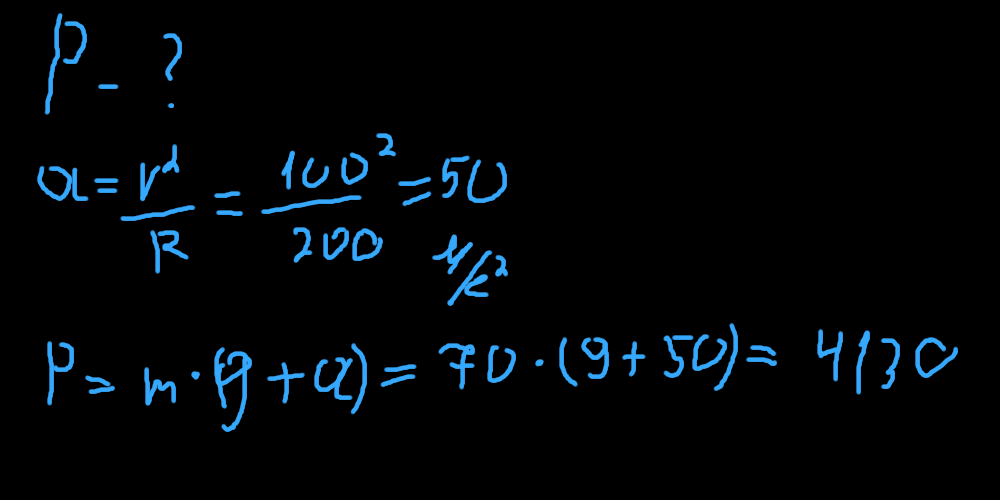 P - ?
a = v² / R = 100² / 200 = 50 м/с²
P = m · (g + a) = 70 · (9 + 50) = 4130